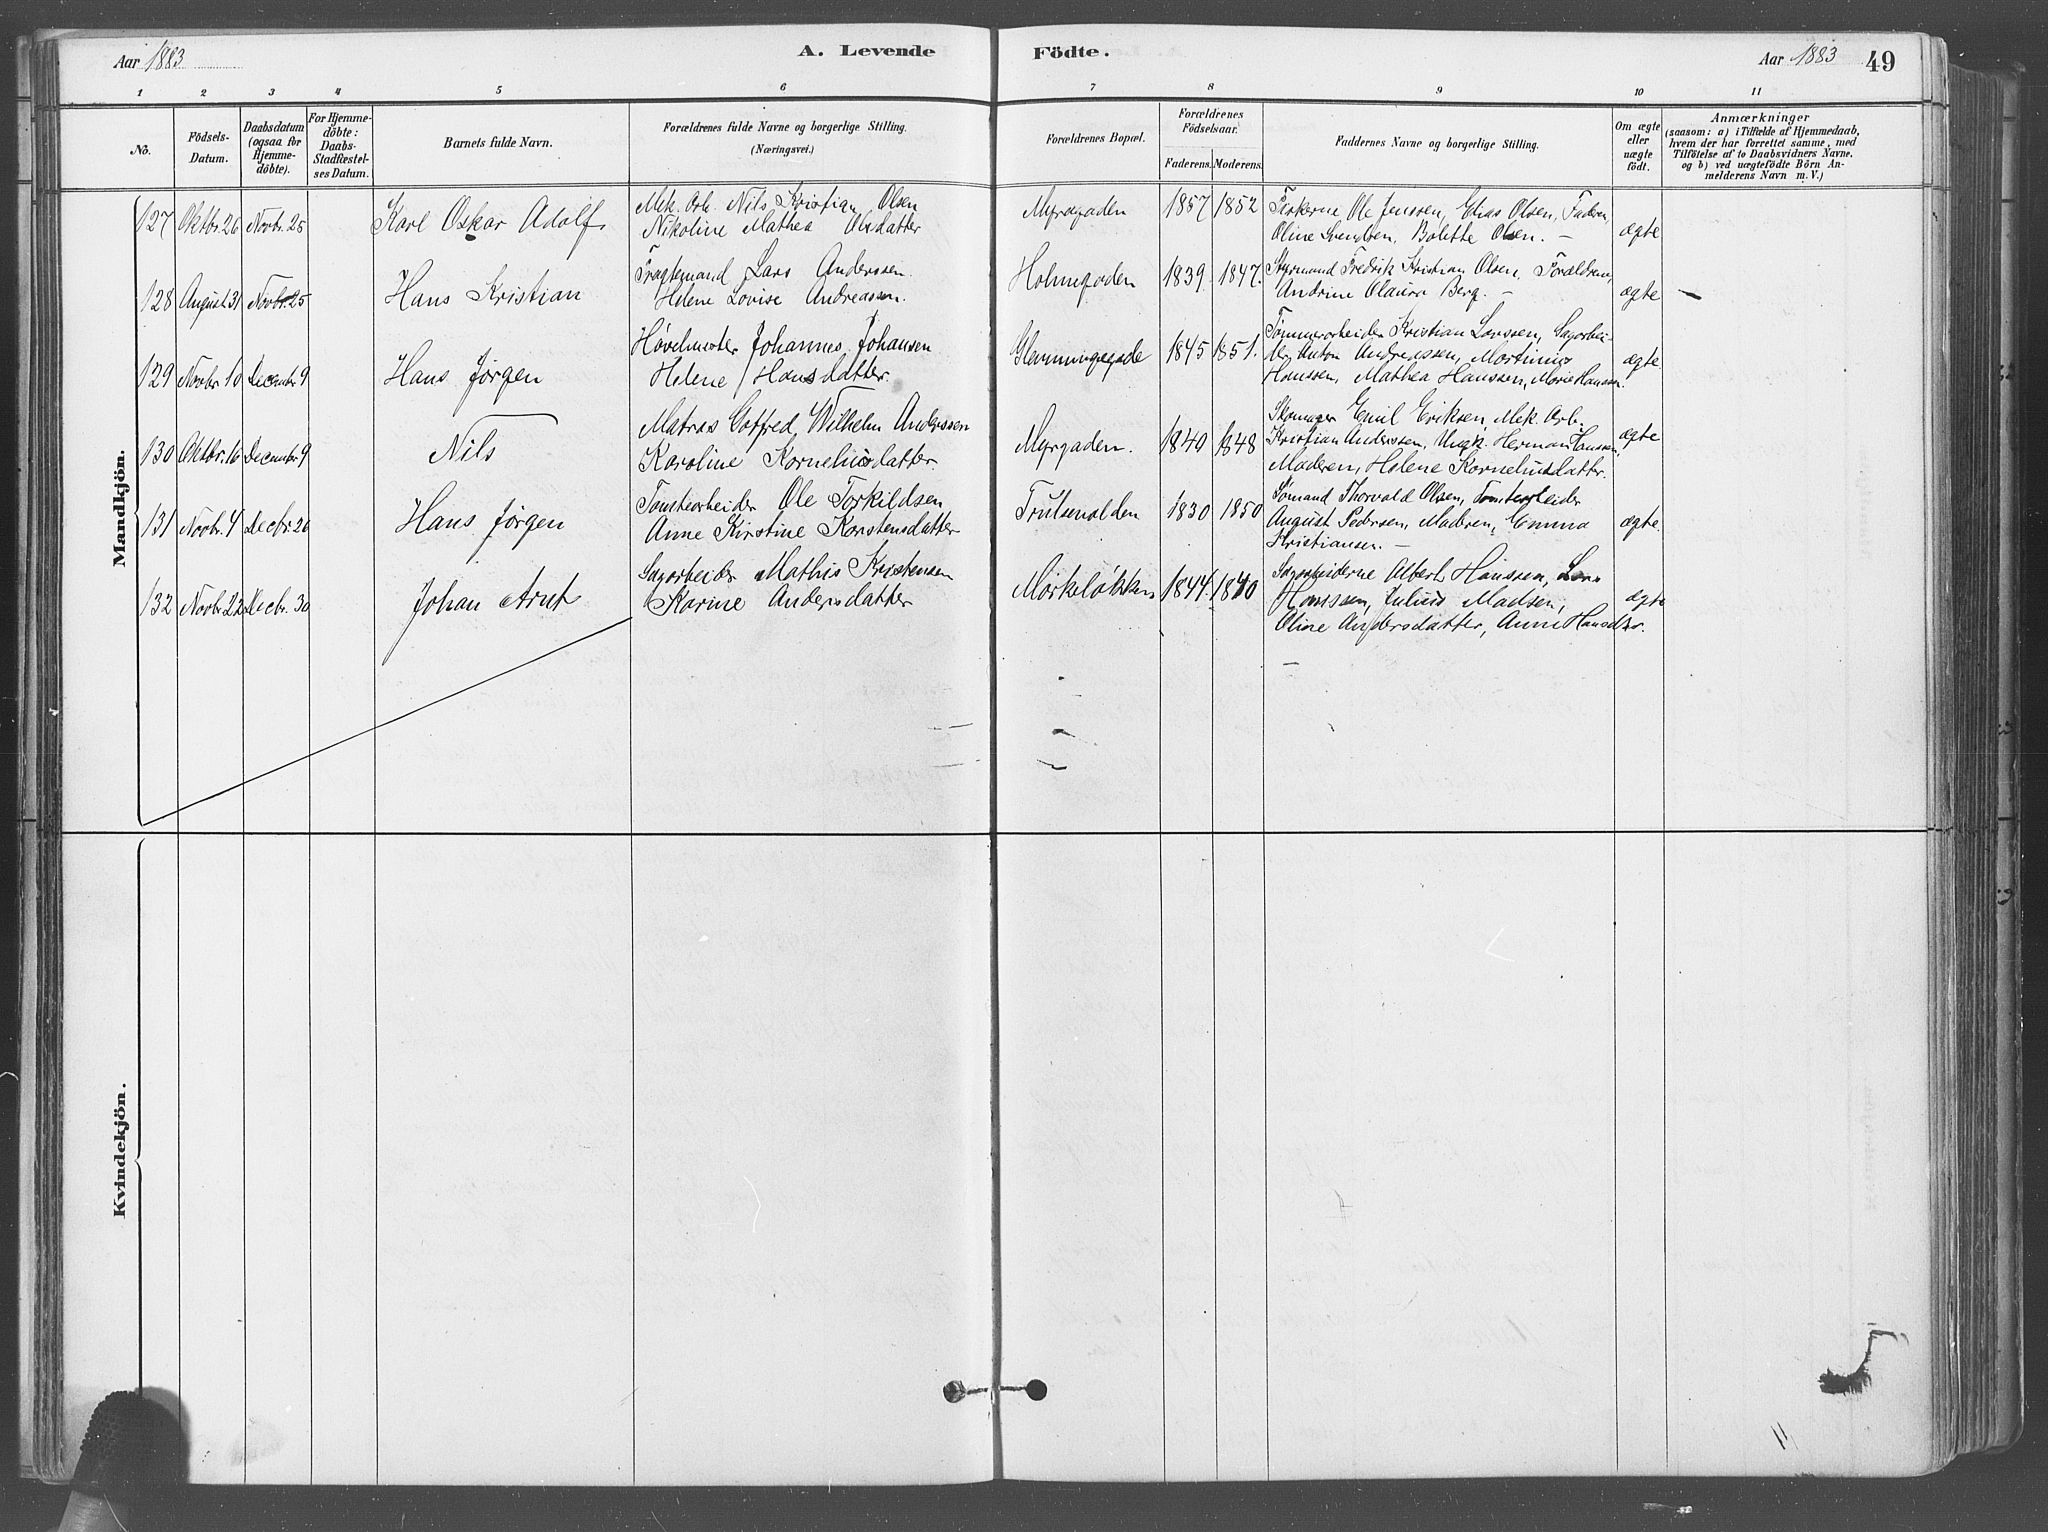 Aar 1883 A. Levende Födte. Aar 1883 49
1 2 3 4 5 6 7 8 9 10 11
No.
Födsels-Datum.
Daabsdatum (ogsaa for Hjemme-döbte).
For Hjemme-döbte: Daabs-Stadfæstel-ses Datum.
Barnets fulde Navn.
Forældrenes fulde Navne og borgerlige Stilling.
(Næringsvei.)
Forældrenes Bopæl.
Forældrenes Födselsaar.
Faderens. Moderens.
Faddernes Navne og borgerlige Stilling.
Om ægte eller uægte födt.
Anmærkninger
(saasom: a) i Tilfælde af Hjemmedaab,
hvem der har forrettet samme, med
Tilföielse af to Daabsvidners Navne,
og b) ved uægtefödte Börn An-
melderens Navn m. V.)
Mandkjön.
127 Oktbr. 26 Novbr. 25 Karl Oskar Adolf
Mek. Arb. Nils Kristian Olsen
Nikoline Mathea Olsdatter
Myrgaden 1857 1852
Ole Jenssen, Elias Olsen, Faderen,
Oline Svendsen, Bolette Olsen. —
ægte
128 August 31 Novbr. 25 Hans Kristian
Fragtemand Lars Anderssen.
Helene Lovise Andreassen.
Holmegaden 1839. 1847.
Styrmand Fredrik Kristian Olsen, Forældrene,
Andrine Olaura Berg. —
ægte —
129 Novbr. 10 Decembr 9 Hans Jørgen
Høvlmester Johannes Johansen
Helene Hansdatter.
Glemmingegade 1845 1851.
Tømmerarbeider Kristian Larssen, Sagarbei-
der Anton Andreassen, Martinius
Hanssen, Mathea Hanssen, Marie Hanssen.
ægte
130 Oktbr. 16 Decembr 9 Nils
Matros Gotfred Wilhelm Anderssen
Karoline Korneliusdatter.
Myrgaden. 1840 1848
Skomager Emil Eriksen, Mek. Arb.
Kristian Anderssen, Ungk. Herman Hanssen,
Moderen, Helene Korneliusdatter.
ægte
131 Novbr. 4 Decbr. 26 Hans Jørgen
Tomtearbeider Ole Torkildsen
Anne Kirstine Karstensdatter
Trulsevolden 1830 1850
Sømand Thorvald Olsen, Tomtearbeider
August Pedersen, Moderen, Emma
Kristiansen. —
ægte.
132 Novbr. 22 Decbr. 30 Johan Arnt
Sagarbeider Mathis Kristensen
Karine Andersdatter
Mørkeløkken 1844. 1840
Sagarbeiderne Albert Hanssen, Lars
Hanssen, Julius Madsen,
Oline Andersdatter, Anne Hansdtr.
—
ægte
Kvindekjön.